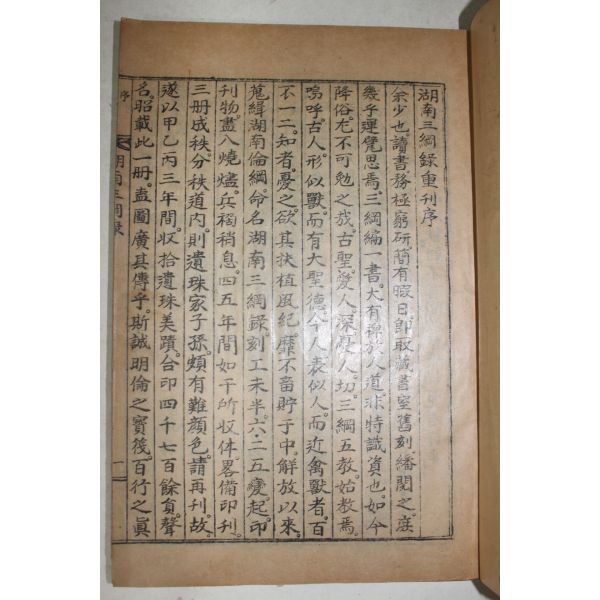 湖南三綱錄重刊序
余少也。讀書務極窮研。簡有暇日。卽取藏蓄室舊刻繙閱之。庶
幾乎運覽思焉。三綱編一書。大有裨於人道。非特識資也。如今
降俗。尤不可勉之哉。古聖愛人深。憂人切。三綱五敎。始敎焉。
嗚呼。古人形似獸。而有大聖德。今人表似人。而近禽獸者。百
不一二。知者。憂之。欲其扶植風紀。靡不畜貯于中。解放以來。
蒐緝湖南倫綱。命名湖南三綱錄。刻工未半。六·二五變起。印
刊物。盡入燒燼。兵禍稍息。四五年間。如干所收。体畧備印刊
三册成秩。分秩道內。則遺珠家子孫。頗有難顏色。請再刊。故
遂以甲乙丙三年間。收拾遺珠美蹟。合印四千七百餘負。聲
名。昭載此一册。盖圖廣其傳乎。斯誠明倫之寶筏。百行之眞
序
湖南三綱錄
一